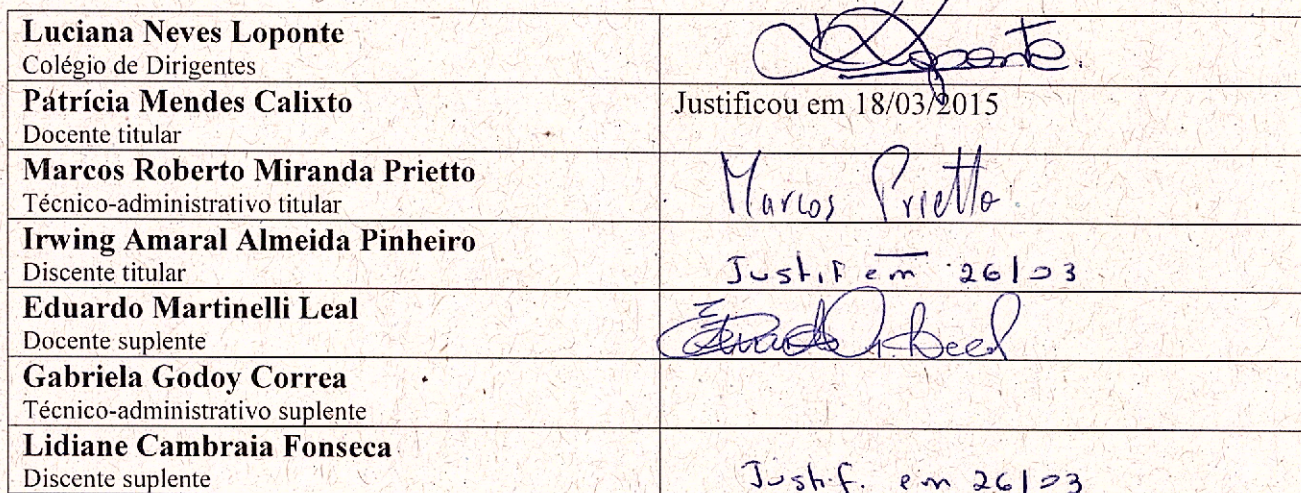 Luciana Neves Loponte
Colégio de Dirigentes
Loponte.
Patrícia Mendes Calixto
Docente titular
Justificou em 18/03/2015
Marcos Roberto Miranda Prietto
Técnico-administrativo titular
Marcos Prietto.
Irwing Amaral Almeida Pinheiro
Discente titular
Justif em 26/03
Eduardo Martinelli Leal
Docente suplente
Gabriela Godoy Correa
Técnico-administrativo suplente
Lidiane Cambraia Fonseca
Discente suplente
Justif. em 26/03